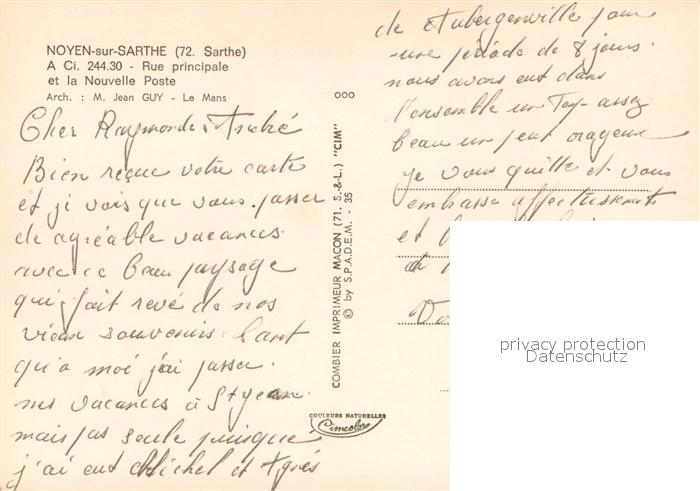 NOYEN-sur-SARTHE (72. Sarthe)
A Ci. 244.30 - Rue principale
et la Nouvelle Poste
Arch. : M. Jean GUY - Le Mans
Cher Raymonde & André
Bien reçue votre carte
et je vois que vous passer
de agréable vacances
avec ce beau paysage
qui fait revé de nos
vieux souvenirs. Cant
qu'a moi j'ai passer
mes vacances à St Jean
mais pas seule puisque
j'ai eut Michel et Agnés
COMBIER IMPRIMEUR MACON (71. S.-&-L.) "CIM"
© by S.P.A.D.E.M. - 35
ooo
COULEURS NATURELLES
Cimcolor
de Aubergenville pour
une période de 8 jours.
nous avons eut dans
l'ensemble un assez
beau un peut orageux
Je vous quitte et vous
embasse affectussement
et
privacy protection
Datenschutz